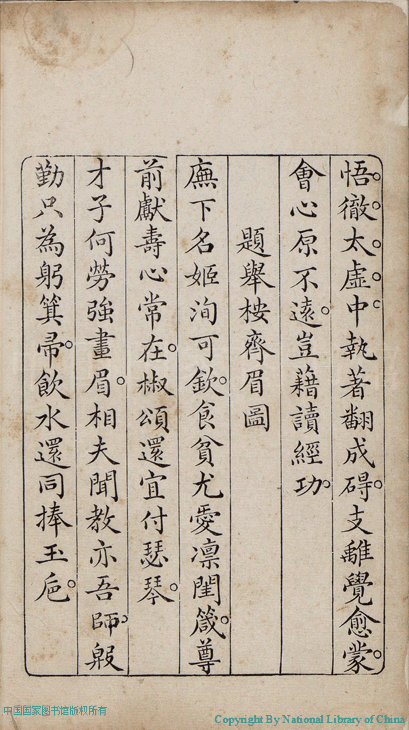 悟。徹。太。虛。中。執著翻成碍。支離覺愈蒙。
會心原不遠。豈藉讀經功。
題舉桉齊眉圖
廡下名姬洵可欽。食貧尤愛凜閨箴。尊
前獻壽心常在。椒頌還宜付瑟琴。
才子何勞強畫眉。相夫聞教亦吾師。殷
勤只為躬箕帚。飲水還同捧玉卮。
中国国家图书馆版权所有
Copyright By National Library of China